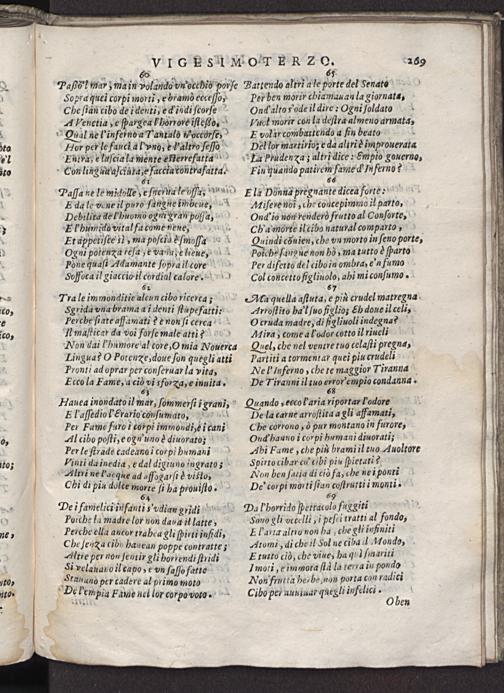 VIGESIMOTERZO. 269
60
Passò'l mar, ma in volando vn'occhio porse
Sopra quei corpi morti, e bramò eccesso,
Che sian cibo de i denti, e d'indi scorse
A Venetia, e spargea l'horrore istesso,
Qual ne l'inferno a Tantalo n'occorse,
Hor per le fauci a l'vno, e l'altro sesso
Entra, e lascia la mente esterrefatta
Con lingua asciuta, e faccia contrafatta.
61
Passa ne le midolle, e snerua le ossa,
E da le vene il puro sangue imbeue,
Debilita de l'huomo ogni gran possa,
E l'humido vital fa come neue,
Et apperisce sì, ma poscia è smossa
Ogni potenza resa, e vana, e lieue,
Pone quasi Adamante sopra il core
Soffoca il giaccio il cordial calore.
62
Tra le immonditie alcun cibo ricerca;
Sgrida vna brama a i denti stupefatti:
Perche siate affamati? e non si cerca
Il masticar da voi forse male atti?
Non dai l'humore al core, O mia Nouerca
Lingua? O Potenze, doue son quegli atti
Pronti ad oprar per conseruar la vita,
Ecco la Fame, a ciò vi sforza, e inuita.
63
Hauea inondato il mar, sommersi i grani,
E l'assedio l'Erario consumato,
Per Fame furo i corpi immondi, e i cani
Al cibo posti, e ogn'uno è diuorato;
Per le strade cadeano i corpi humani
Vinti da inedia, e dal digiuno ingrato;
Altri ne l'acque ad affogarsi è visto,
Chi di più dolce morte si ha prouisto.
64
De i famelici infanti s'vdian gridi
Poiche la madre lor non daua il latte,
Perche ella ancor trahea gli spirti infidi,
Che senza cibo hauean poppe contratte;
Altre per non sentir gli horrendi stridi
Si velauano il capo, e vn sasso fatte
Stauano per cader al primo moto
De l'empia Fame nel lor corpo voto.
65
Battendo altri a le porte del Senato
Per ben morir chiamauan la giornata,
Ond'altro s'ode il dire: Ogni soldato
Vuol morir con la destra almeno armata,
E volar combattendo a fin beato
Del lor martirio; e da altri è improuerata
La Prudenza; altri dice: Empio gouerno,
Fin quando patirem fame d'Inferno?
66
E la Donna pregnante dicea forte:
Misere noi, che concepimmo il parto,
Ond'io non renderò frutto al Consorte,
Ch'a morte il cibo natural comparto,
Quindi cōuien, che vn morto in seno porte,
Poiche sangue non hò, ma tutto è sparto
Per difetto del cibo in ombra, e'n fumo
Col concetto figliuolo, ahi mi consumo.
67
Ma quella astuta, e più crudel matregna
Arrostito ha'l suo figlio; Eh doue il celi,
O cruda madre, di figliuoli indegna?
Mira, come a l'odor cotto il riueli
Quel, che nel ventre tuo celasti pregna,
Partiti a tormentar quei piu crudeli
Ne l'Inferno, che te maggior Tiranna
De Tiranni il tuo error'empio condanna.
68
Quando, ecco l'aria riportar l'odore
De la carne arrostita a gli affamati,
Che corrono, ò pur montano in furore,
Ond'hauno i corpi humani diuorati;
Ahi Fame, che più brami il tuo Auoltore
Spirto cibar co' cibi piu spietati?
Non ben satia di ciò fa, che ne i ponti
De' corpi morti sian costrutti i monti.
69
Da l'horrido spettacolo fuggiti
Sono gli vccelli, i pesci tratti al fondo,
E l'aria altro non ha, che gli infiniti
Atomi, di che il Sol ne ciba il Mondo,
E tutto ciò, che viue, ha quì smariti
I mori, e immota stà la terra in pondo
Non frutta herbe, non porta con radici
Cibo per nuntiar quegli infelici.
Oben